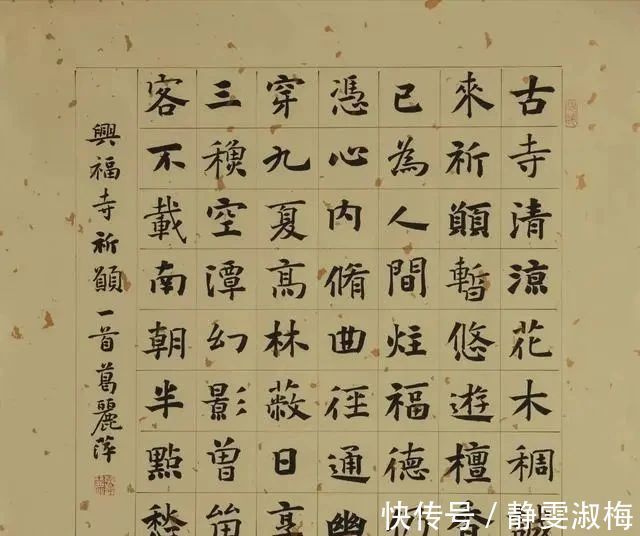 古寺清涼花木稠
來祈願暫悠遊檀香
已為人間炷福德
憑心內脩曲徑通幽
穿九夏高林蔽日
三空潭幻影曾
客不載南朝半點愁
興福寺祈願一首葛麗萍
快传号/静雯淑梅